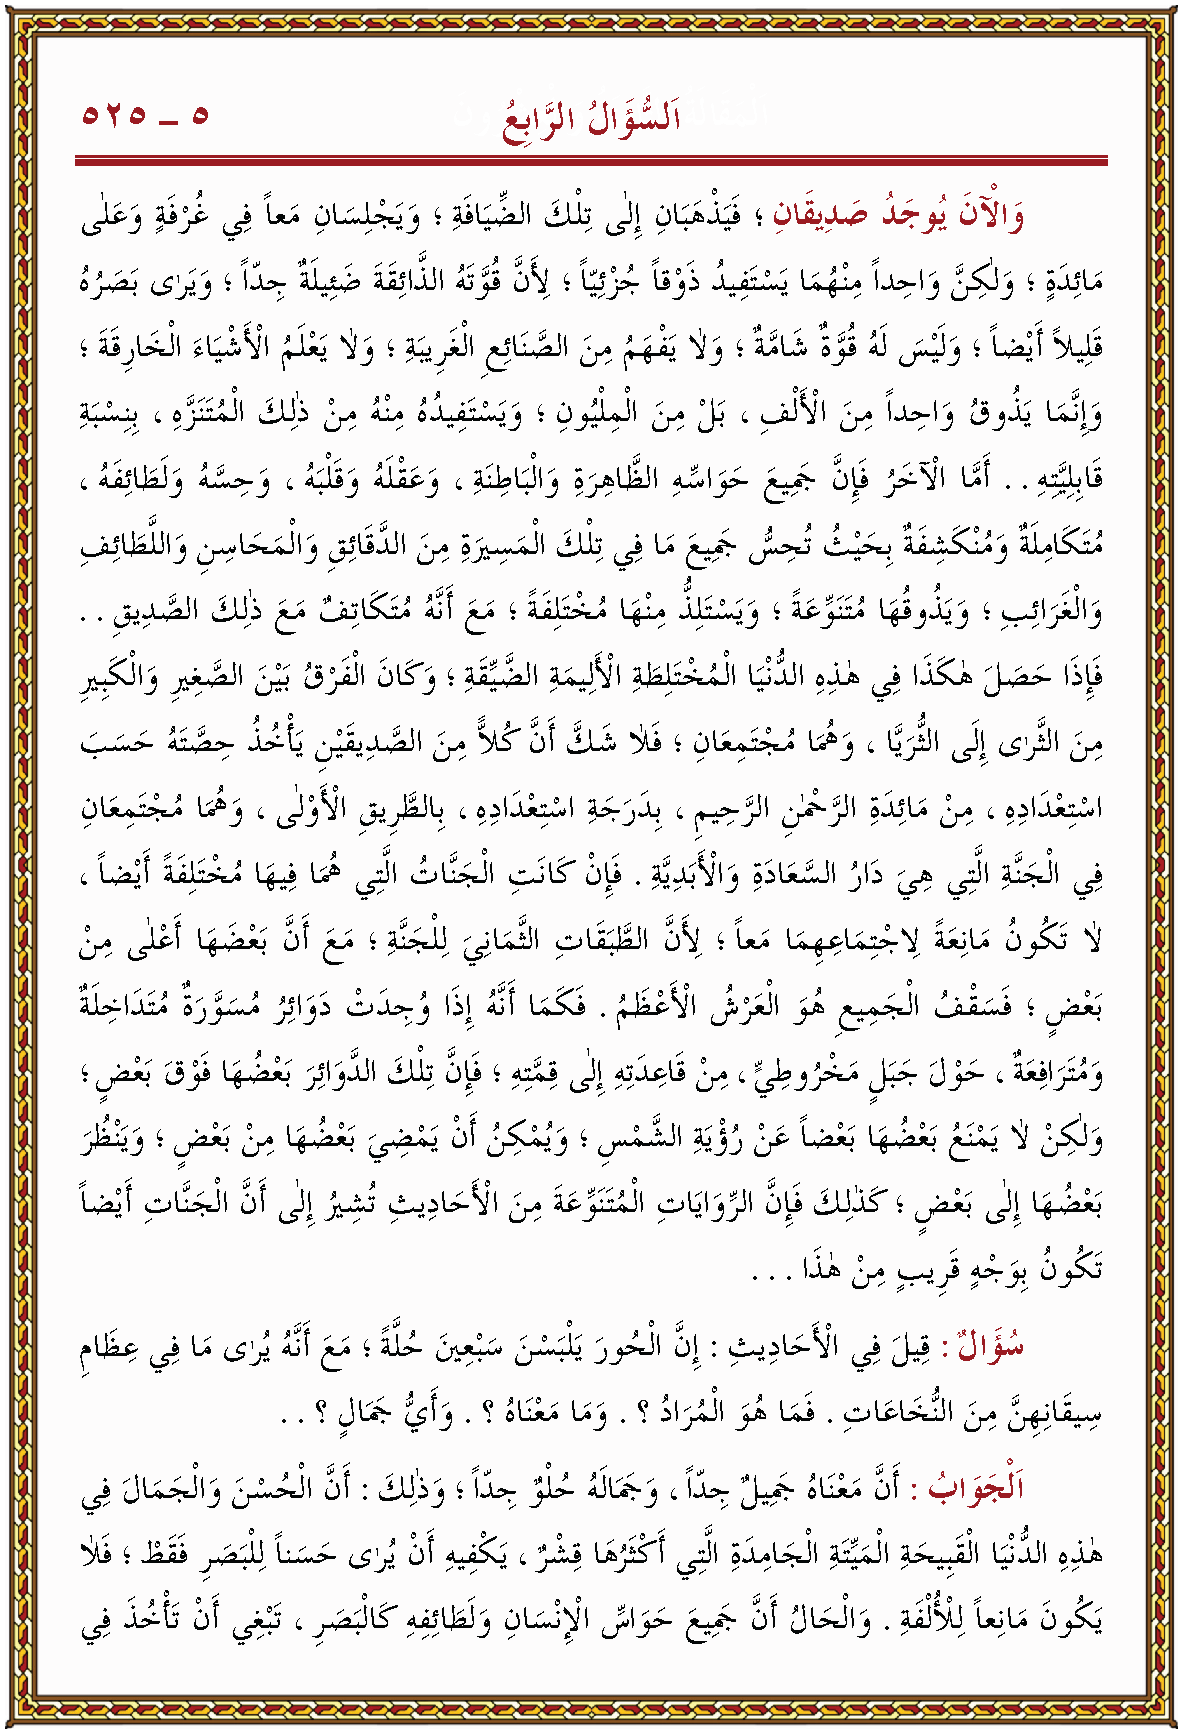 اَلسُّؤَالُ الرَّابِعُ
٥ ـ ٥٢٥
وَالْاٰنَ يُوجَدُ صَدِيقَانِ ؛ فَيَذْهَبَانِ إِلٰى تِلْكَ الضِّيَافَةِ ؛ وَيَجْلِسَانِ مَعاً فِي غُرْفَةٍ وَعَلٰى
مَائِدَةٍ ؛ وَلٰكِنَّ وَاحِداً مِنْهُمَا يَسْتَفِيدُ ذَوْقاً جُزْئِيّاً ؛ لِأَنَّ قُوَّتَهُ الذَّائِقَةَ ضَئِيلَةٌ جِدّاً ؛ وَيَرٰى بَصَرُهُ
قَلِيلاً أَيْضاً ؛ وَلَيْسَ لَهُ قُوَّةٌ شَامَّةٌ ؛ وَلاٰ يَفْهَمُ مِنَ الصَّنَائِعِ الْغَرِيبَةِ ؛ وَلاٰ يَعْلَمُ الْأَشْيَاءَ الْخَارِقَةَ ؛
وَإِنَّمَا يَذُوقُ وَاحِداً مِنَ الْأَلْفِ ، بَلْ مِنَ الْمِلْيُونِ ؛ وَيَسْتَفِيدُهُ مِنْهُ مِنْ ذٰلِكَ الْمُتَنَزَّهِ ، بِنِسْبَةِ
قَابِلِيَّتِهِ . . أَمَّا الْاٰخَرُ فَإِنَّ جَمِيعَ حَوَاسِّهِ الظَّاهِرَةِ وَالْبَاطِنَةِ ، وَعَقْلَهُ وَقَلْبَهُ ، وَحِسَّهُ وَلَطَائِفَهُ ،
مُتَكَامِلَةٌ وَمُنْكَشِفَةٌ بِحَيْثُ تُحِسُّ جَمِيعَ مَا فِي تِلْكَ الْمَسِيرَةِ مِنَ الدَّقَائِقِ وَالْمَحَاسِنِ وَاللَّطَائِفِ
وَالْغَرَائِبِ ؛ وَيَذُوقُهَا مُتَنَوِّعَةً ؛ وَيَسْتَلِذُّ مِنْهَا مُخْتَلِفَةً ؛ مَعَ أَنَّهُ مُتَكَاتِفٌ مَعَ ذٰلِكَ الصَّدِيقِ . .
فَإِذَا حَصَلَ هٰكَذَا فِي هٰذِهِ الدُّنْيَا الْمُخْتَلِطَةِ الْأَلِيمَةِ الضَّيِّقَةِ ؛ وَكَانَ الْفَرْقُ بَيْنَ الصَّغِيرِ وَالْكَبِيرِ
مِنَ الثَّرٰى إِلَى الثُّرَيَّا ، وَهُمَا مُجْتَمِعَانِ ؛ فَلاٰ شَكَّ أَنَّ كُلّاً مِنَ الصَّدِيقَيْنِ يَأْخُذُ حِصَّتَهُ حَسَبَ
اسْتِعْدَادِهِ ، مِنْ مَائِدَةِ الرَّحْمٰنِ الرَّحِيمِ ، بِدَرَجَةِ اسْتِعْدَادِهِ ، بِالطَّرِيقِ الْأَوْلٰى ، وَهُمَا مُجْتَمِعَانِ
فِي الْجَنَّةِ الَّتِي هِيَ دَارُ السَّعَادَةِ وَالْأَبَدِيَّةِ . فَإِنْ كَانَتِ الْجَنَّاتُ الَّتِي هُمَا فِيهَا مُخْتَلِفَةً أَيْضاً ،
لاٰ تَكُونُ مَانِعَةً لِاجْتِمَاعِهِمَا مَعاً ؛ لِأَنَّ الطَّبَقَاتِ الثَّمَانِيَ لِلْجَنَّةِ ؛ مَعَ أَنَّ بَعْضَهَا أَعْلٰى مِنْ
بَعْضٍ ؛ فَسَقْفُ الْجَمِيعِ هُوَ الْعَرْشُ الْأَعْظَمُ . فَكَمَا أَنَّهُ إِذَا وُجِدَتْ دَوَائِرُ مُسَوَّرَةٌ مُتَدَاخِلَةٌ
وَمُتَرَافِعَةٌ ، حَوْلَ جَبَلٍ مَخْرُوطِيٍّ ، مِنْ قَاعِدَتِهِ إِلٰى قِمَّتِهِ ؛ فَإِنَّ تِلْكَ الدَّوَائِرَ بَعْضُهَا فَوْقَ بَعْضٍ ؛
وَلٰكِنْ لاٰ يَمْنَعُ بَعْضُهَا بَعْضاً عَنْ رُؤْيَةِ الشَّمْسِ ؛ وَيُمْكِنُ أَنْ يَمْضِيَ بَعْضُهَا مِنْ بَعْضٍ ؛ وَيَنْظُرَ
بَعْضُهَا إِلٰى بَعْضٍ ؛ كَذٰلِكَ فَإِنَّ الرِّوَايَاتِ الْمُتَنَوِّعَةَ مِنَ الْأَحَادِيثِ تُشِيرُ إِلٰى أَنَّ الْجَنَّاتِ أَيْضاً
تَكُونُ بِوَجْهٍ قَرِيبٍ مِنْ هٰذَا . . .
سُؤَالٌ : قِيلَ فِي الْأَحَادِيثِ : إِنَّ الْحُورَ يَلْبَسْنَ سَبْعِينَ حُلَّةً ؛ مَعَ أَنَّهُ يُرٰى مَا فِي عِظَامِ
سِيقَانِهِنَّ مِنَ النُّخَاعَاتِ . فَمَا هُوَ الْمُرَادُ ؟ . وَمَا مَعْنَاهُ ؟ . وَأَيُّ جَمَالٍ ؟ . .
اَلْجَوَابُ : أَنَّ مَعْنَاهُ جَمِيلٌ جِدّاً ، وَجَمَالَهُ حُلْوٌ جِدّاً ؛ وَذٰلِكَ : أَنَّ الْحُسْنَ وَالْجَمَالَ فِي
هٰذِهِ الدُّنْيَا الْقَبِيحَةِ الْمَيِّتَةِ الْجَامِدَةِ الَّتِي أَكْثَرُهَا قِشْرٌ ، يَكْفِيهِ أَنْ يُرٰى حَسَناً لِلْبَصَرِ فَقَطْ ؛ فَلاٰ
يَكُونَ مَانِعاً لِلْأُلْفَةِ . وَالْحَالُ أَنَّ جَمِيعَ حَوَاسِّ الْإِنْسَانِ وَلَطَائِفِهِ كَالْبَصَرِ ، تَبْغِي أَنْ تَأْخُذَ فِي